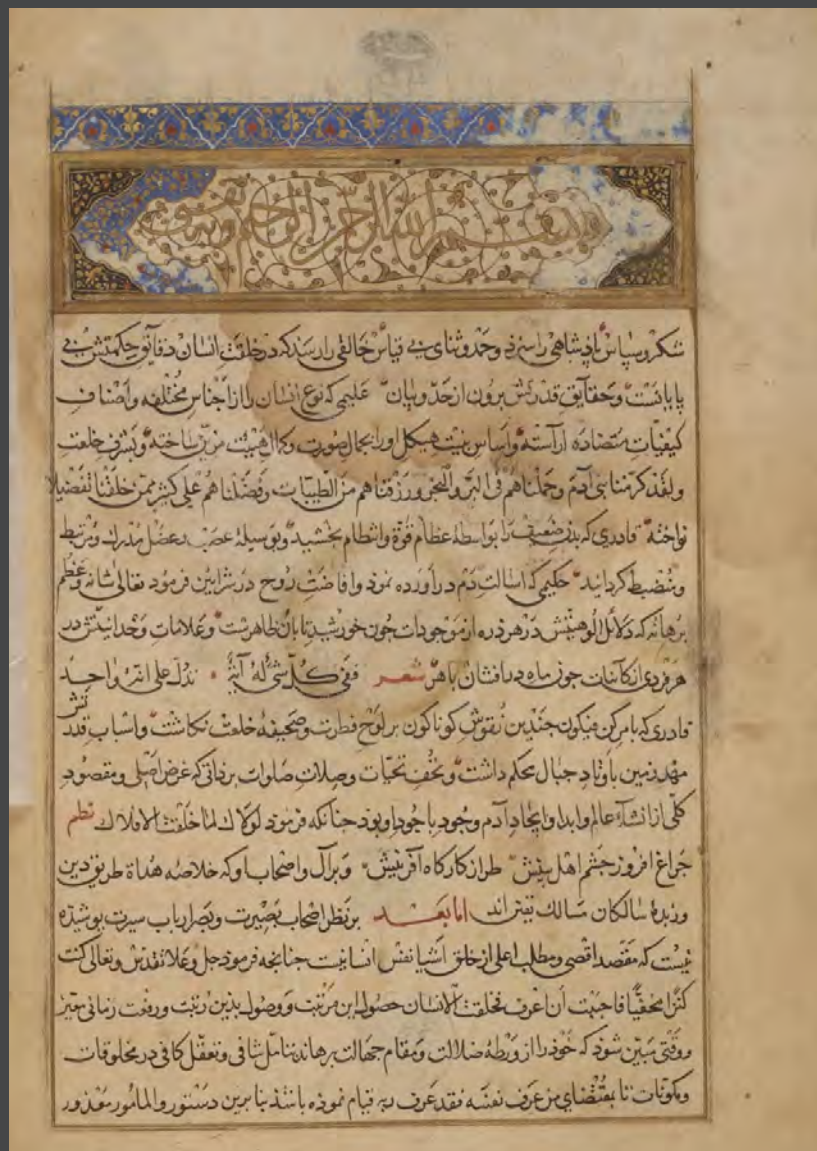 بسم الله الرحمن الرحيم وبه نستعين
شکر و سپاس پادشاهی را سزد و حمد و ثنای بی قیاس خالقی را رسد که در خلقت انسان دقایق حکمتش بی
پایانست و حقایق قدرتش برون از حد و بیان علیمی که نوع انسان را از اجناس مختلفه و اصناف
کیفیات متضاده آراسته و اساس بنیت هیکل او را بجمال صورت و کمال هیئت مزین ساخته و بشرف خلعت
ولقد کرمنا بنی آدم وحملناهم فی البر والبحر ورزقناهم من الطیبات وفضلناهم علی کثیر ممن خلقنا تفضیلا
نواخته قادری که بنیت ضعیف را بواسطهٔ عظام قوة و انتظام بخشید و بوسیلهٔ عصب و عضل مدرک و مرتبط
و منضبط کردانید حکیمی که اسالت دم در آورده نمود و افاضت روح در شرایین فرمود تعالی شانه وعظم
برهانه که دلائل الوهیتش در هر ذره از موجودات جون خورشید تابان ظاهرست و علامات وحدانیتش در
هر فردی از کاینات جون ماه درافشان باهر شعر ففی کل شئ له آیة تدل علی انه واحد
قادری که بامر کن فیکون جندین نقوش کوناکون بر لوح فطرت و صحیفهٔ خلعت نکاشت و اسباب قدرتش
مهد زمین باوتاد جبال محکم داشت و تحف تحیات و صلات صلوات بر ذاتی که غرض اصلی و مقصود
کلی از انشاء عالم و ابداء و ایجاد آدم وجود باجود او بود جنانکه فرمود لولاک لما خلقت الافلاک نظم
جراغ افروز جشم اهل بینش طراز کارکاه آفرینش و بر آل و اصحاب او که خلاصه هداة طریق دین
و زبدهٔ سالکان مسالک یقین اند اما بعد بر نظر اصحاب بصیرت و بصر ارباب سیرت بوشیده
نیست که مقصد اقصی و مطلب اعلی از خلق اشیا نفس انسانیت جنانجه فرمود جل وعلا وتقدس وتعالی کنت
کنزا مخفیا فاحببت ان اعرف فخلقت الانسان حصول این مرتبت و وصول بدین رتبت و رفعت زمانی میسر
و وقتی مبین شود که خود را از ورطهٔ ضلالت و مقام جهالت برهاند بتامل شافی و تعقل کافی در مخلوقات
و مکونات تا بمقتضای من عرف نفسه فقد عرف ربه قیام نموده باشد بنابرین دستور والمامور معذور